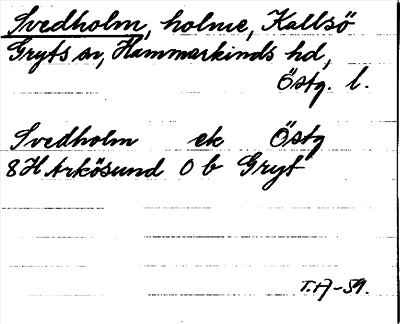 Svedholm, holme, Kallsö
Gryts sn, Hammarkinds hd,
Östg. l.
Svedholm ek Östg
8H Arkösund 0 b Gryt
T.A-59.